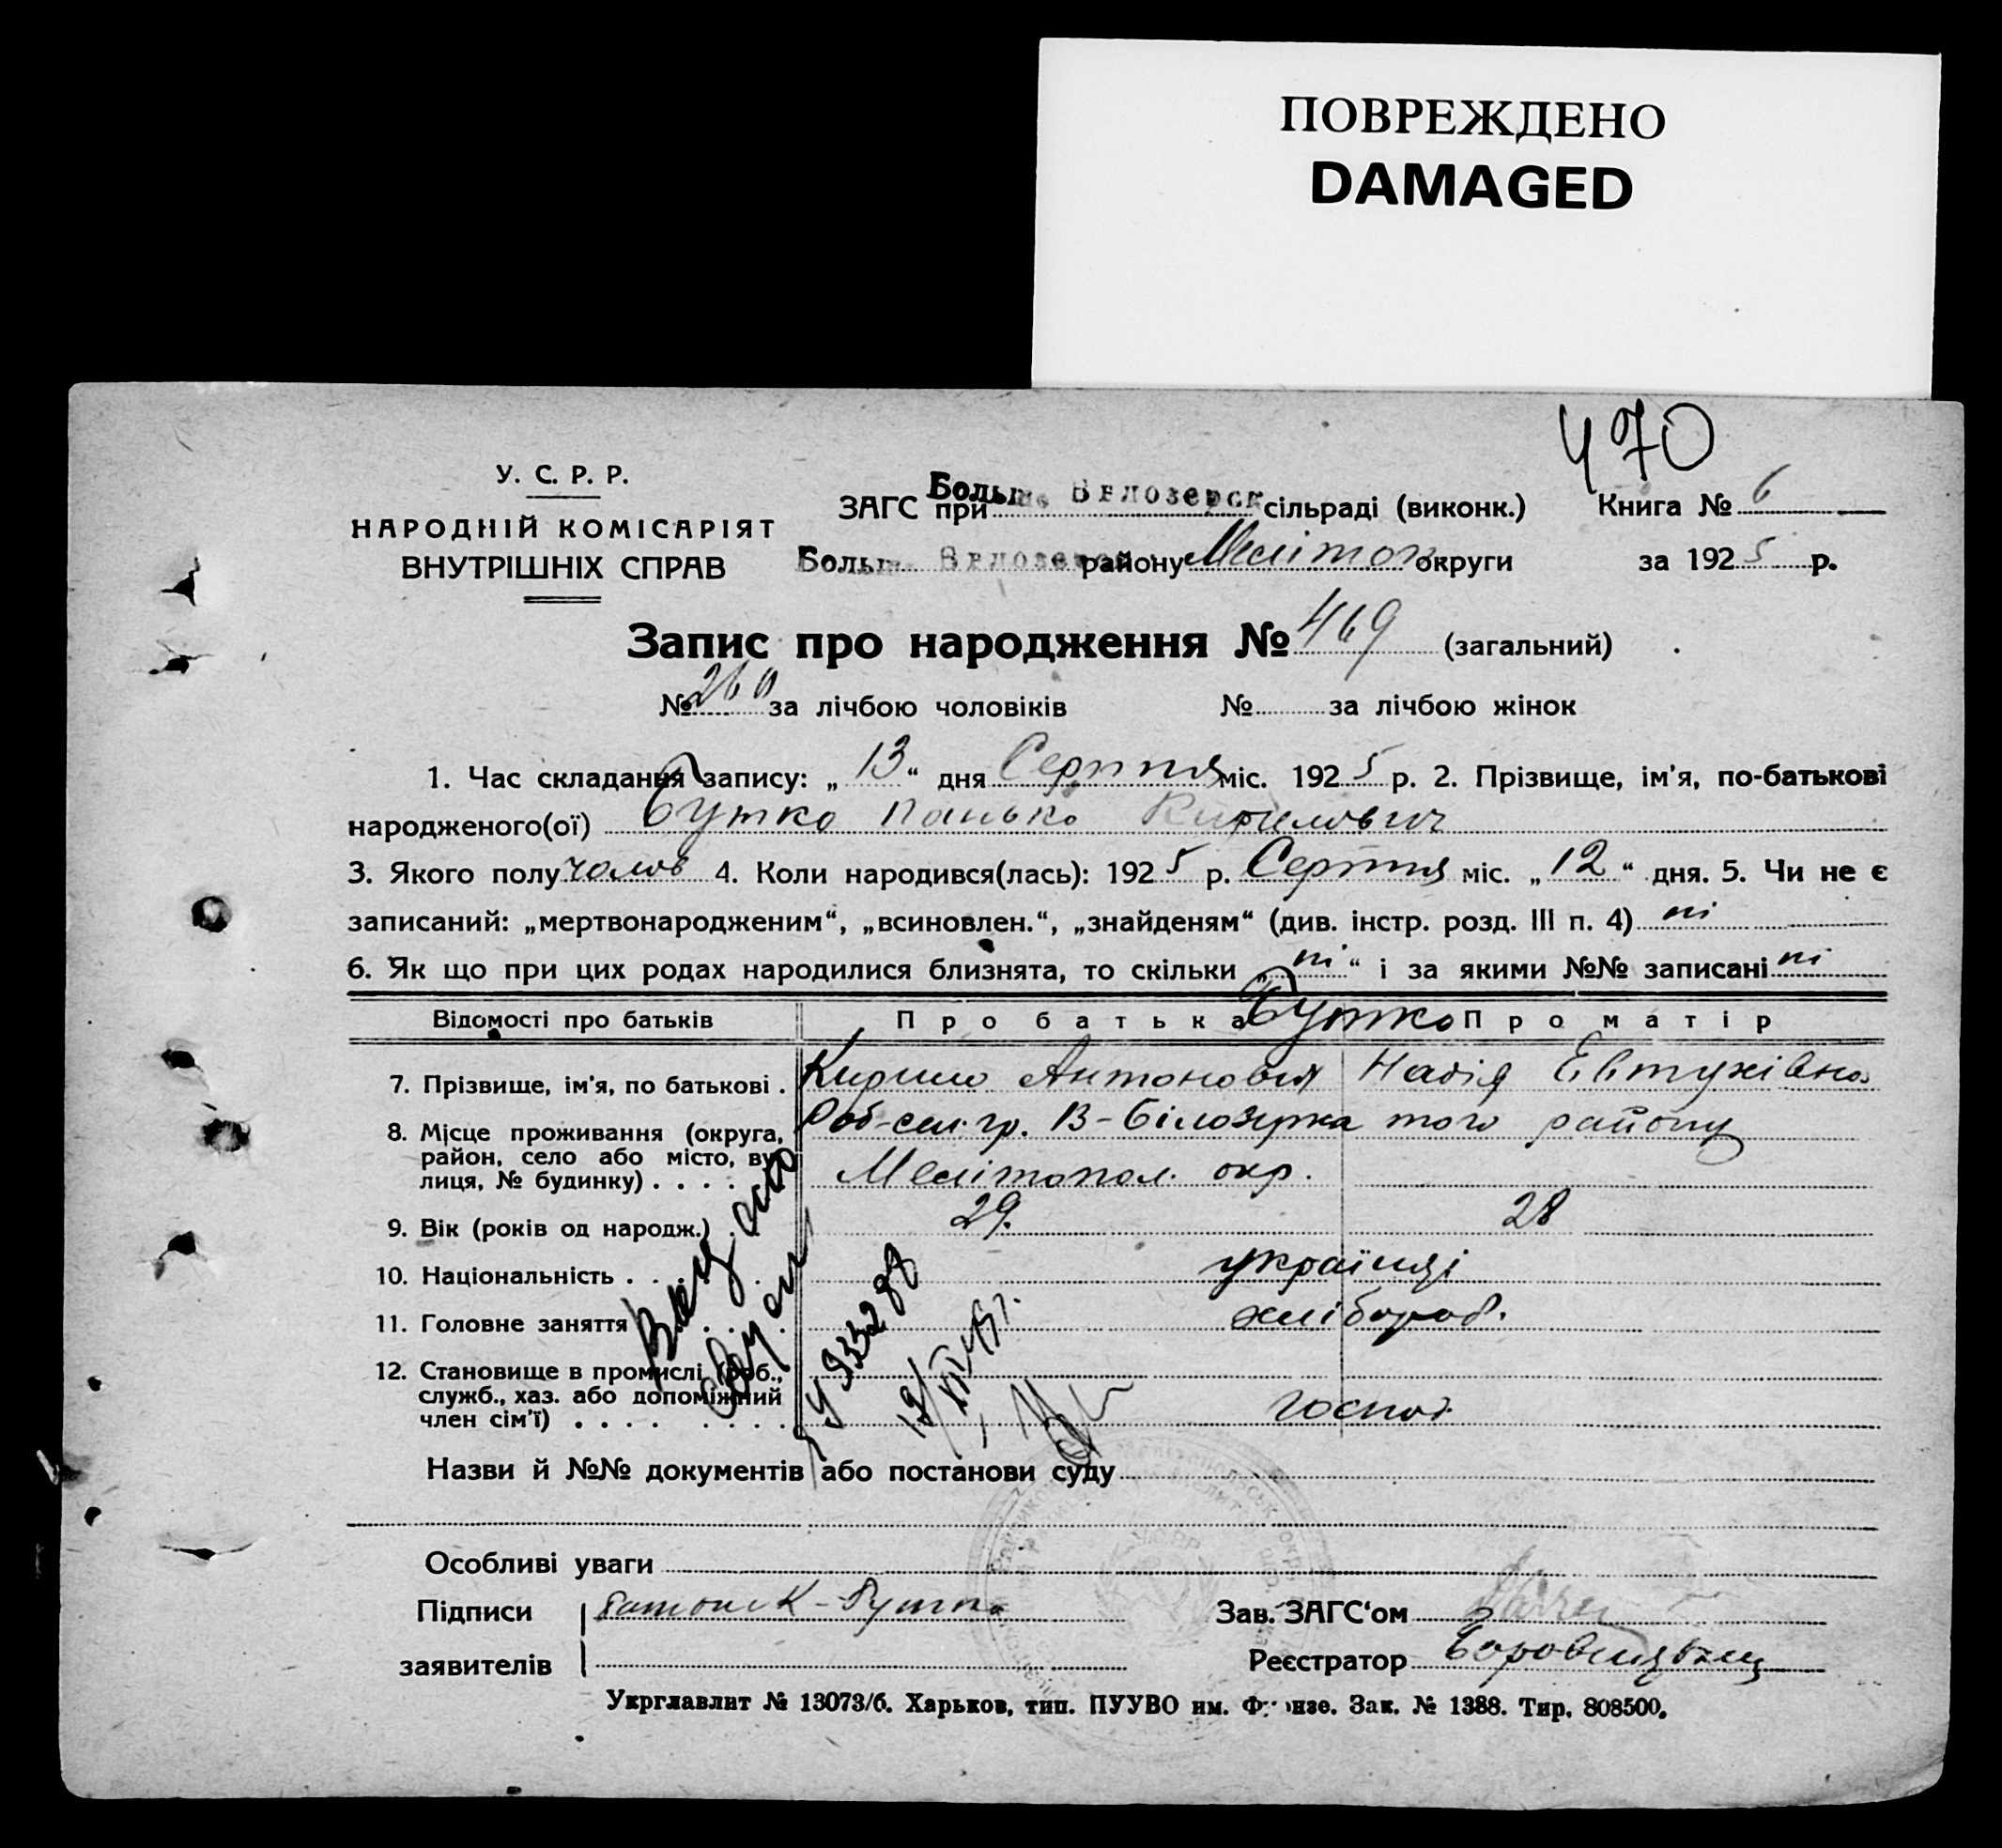 ПОВРЕЖДЕНО
DAMAGED
470
У. С. Р. Р.
НАРОДНІЙ КОМІСАРІЯТ
ВНУТРІШНІХ СПРАВ
ЗАГС при Больше Белозерск сільраді (виконк.) Книга № 6
Больше Белозерск району Мелітоп округи за 1925 р.
Запис про народження № 469 (загальний)
№ 260 за лічбою чоловіків № за лічбою жінок
1. Час складання запису: „13“ дня Серпня міс. 1925 р. 2. Прізвище, ім'я, по-батькові
народженого(ої) Бутко Панько Кирилович
3. Якого полу чолов 4. Коли народився(лась): 1925 р. Серпня міс. „12“ дня. 5. Чи не є
записаний: „мертвонародженим“, „всиновлен.“, „знайденям“ (див. інстр. розд. III п. 4) ні
6. Як що при цих родах народилися близнята, то скільки „ні“ і за якими №№ записані ні
Відомості про батьків Про батька Бутко Про матір
7. Прізвище, ім'я, по батькові . Кирило Антонович Надія Евтухівна
8. Місце проживання (округа, район, село або місто, вулиця, № будинку) . . . . В-Білозерка того району
Мелітопол. окр.
9. Вік (років од народж.) . 29. 28
10. Національність . . . українці
11. Головне заняття хлібороб.
12. Становище в промислі (роб., служб., хаз. або допоміжний член сім'ї) . . . . господ
Назви й №№ документів або постанови суду
Особливі уваги
Підписи К-Бутко Зав. ЗАГС‘ом
заявителів Реєстратор
Укрглавлит № 13073/б. Харьков, тип. ПУУВО им. Фрунзе. Зак. № 1388. Тир. 808500.